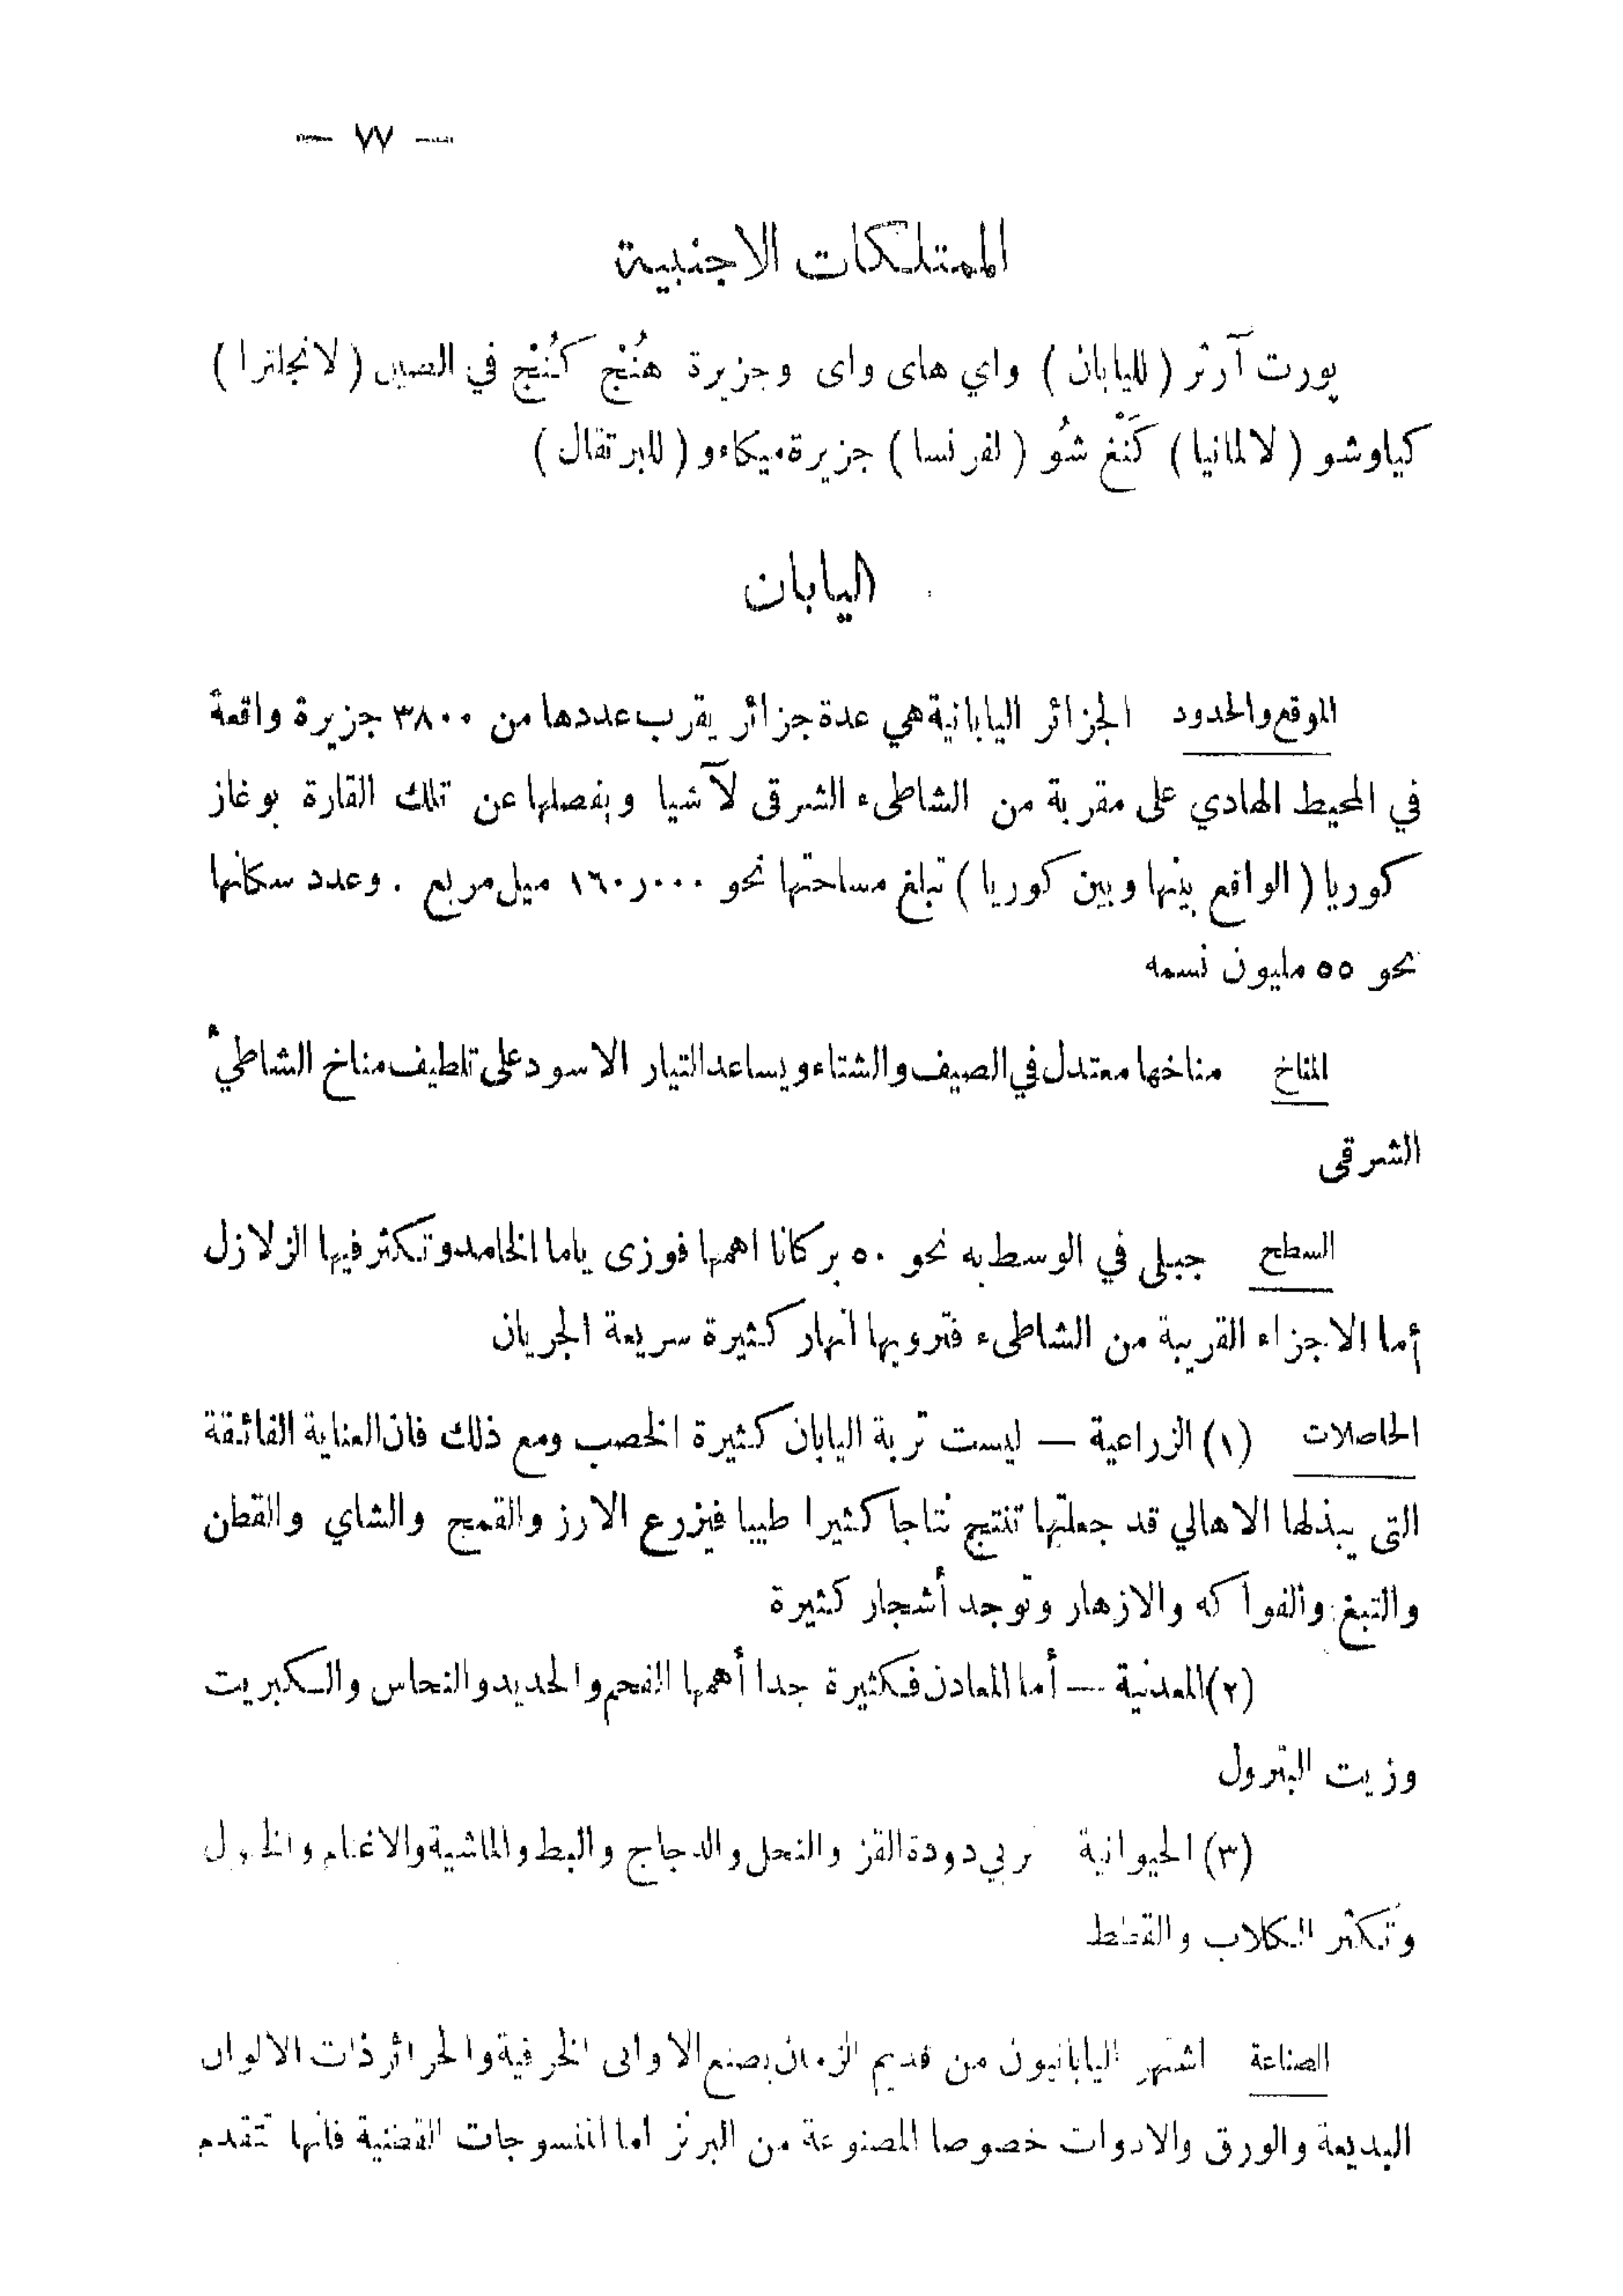 — ٧٧ —
الممتلكات الاجنبية
پورت آرثر (لليابان) واي هاى واى وجزيرة هُنْج كُنْج في الصين (لانجلترا)
كياوشو (لالمانيا) كَنْغ شُو (لفرنسا) جزيرة ميكاءو (للبرتقال)
اليابان
الموقع والحدود الجزائر اليابانية هي عدة جزائر يقرب عددها من ٣٨٠٠ جزيرة واقعة
في المحيط الهادي على مقربة من الشاطىء الشرقى لآسيا ويفصلها عن تلك القارة بوغاز
كوريا (الواقع بينها وبين كوريا) تبلغ مساحتها نحو ١٦٠ر٠٠٠ ميل مربع . وعدد سكانها
نحو ٥٥ مليون نسمه
المناخ مناخها معتدل في الصيف والشتاء ويساعد التيار الاسود على تلطيف مناخ الشاطئ
الشرقى
السطح جبلى في الوسط به نحو ٥٠ بركانا اهمها فوزى ياما الخامد وتكثر فيها الزلازل
أما الاجزاء القريبة من الشاطىء فترويها انهار كثيرة سريعة الجريان
الحاصلات (١) الزراعية — ليست تربة اليابان كثيرة الخصب ومع ذلك فان العناية الفائقة
التى يبذلها الاهالي قد جعلتها تنتج نتاجا كثيرا طيبا فيزرع الارز والقمح والشاي والقطن
والتبغ والفواكه والازهار وتوجد أشجار كثيرة
(٢) المعدنية — أما المعادن فكثيرة جدا أهمها الفحم والحديد والنحاس والكبريت
وزيت البترول
(٣) الحيوانية تربي دودة القز والنحل والدجاج والبط والماشية والاغنام والخيول
وتكثر الكلاب والقطط
الصناعة اشتهر اليابانيون من قديم الزمان بصنع الاوانى الخزفية والحرائر ذات الالوان
البديعة والورق والادوات خصوصا المصنوعة من البرنز اما المنسوجات القطنية فانها تتقدم